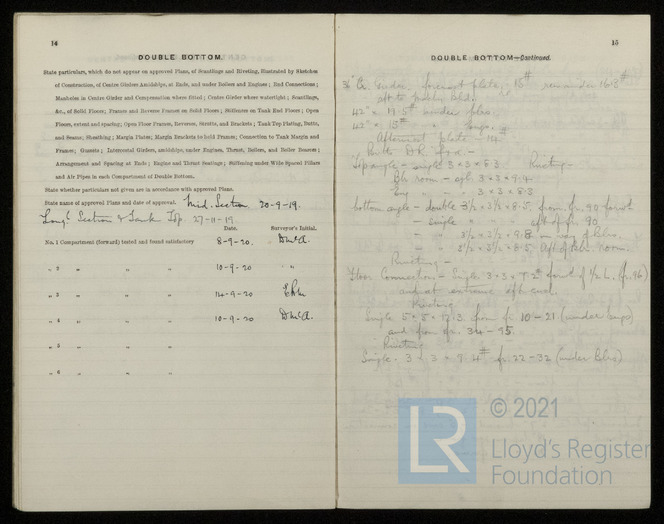 14
DOUBLE BOTTOM.
State particulars, which do not appear on approved Plans, of Scantlings and Riveting, illustrated by Sketches
of Construction, of Centre Girders Amidships, at Ends, and under Boilers and Engines; End Connections;
Manholes in Centre Girder and Compensation where fitted; Centre Girder where watertight; Scantlings,
&c., of Solid Floors; Frames and Reverse Frames on Solid Floors; Stiffeners on Tank End Floors; Open
Floors, extent and spacing; Open Floor Frames, Reverses, Struts, and Brackets; Tank Top Plating, Butts,
and Seams; Sheathing; Margin Plates; Margin Brackets to hold Frames; Connection to Tank Margin and
Frames; Gussets; Intercostal Girders, amidships, under Engines, Thrust, Boilers, and Boiler Bearers;
Arrangement and Spacing at Ends; Engine and Thrust Seatings; Stiffening under Wide Spaced Pillars
and Air Pipes in each Compartment of Double Bottom.
State whether particulars not given are in accordance with approved Plans.
State name of approved Plans and date of approval. Mid. Section 20-9-19.
Long'l Section & Tank Top. 27-11-19.
Date. Surveyor's Initial.
No. 1 Compartment (forward) tested and found satisfactory 8-9-20. DMcA.
" 2 " " " 10-9-20 "
" 3 " " " 14-9-20
" 4 " " " 10-9-20 DMcA.
" 5 " " "
" 6 " " "
15
DOUBLE BOTTOM—Continued.
Girder, foremost plate, 18# remainder 16.8#
aft to
42" × 19.5# under
42" × 18# "
Aftermost plate - 14#
Butts
Top angle - single 3 × 3 × 8.3 Riveting -
Blr room - 3 × 3 × 9.4
Eng " " 3 × 3 × 8.3
bottom angle - double 3½ × 3½ × 8.5. from fr. 90 for'd
- single " " aft of fr. 90
- " 3½ × 3½ × 9.8 in way of Blrs.
- " 3½ × 3½ × 8.5 aft of Blr room.
Riveting -
Floor Connection - Single 3 × 3 × 7.2# for'd of ½ L. (fr. 96)
and at
Riveting
Single 5 × 5 × 17.3 from fr 10-21 (under engs)
and from fr. 34-95.
Riveting
Single - 3 × 3 × 9.4# fr. 22-32 (under Blrs)
LR
© 2021
Lloyd's Register
Foundation